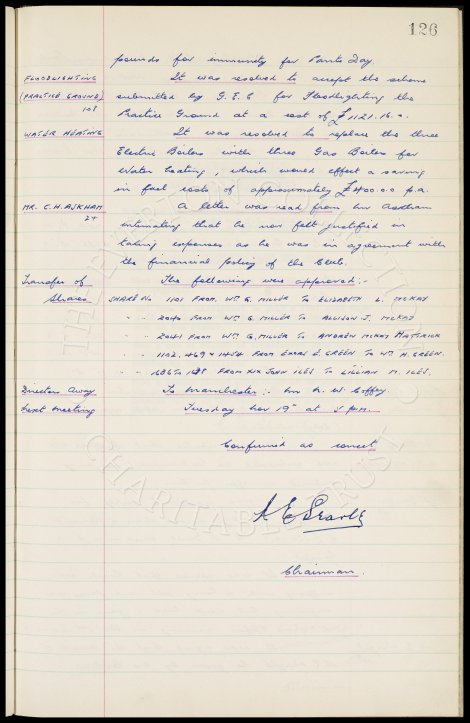 126
pounds for immunity for Panto Day
FLOODLIGHTING It was resolved to accept the scheme
(PRACTICE GROUND) submitted by G.E.C for Floodlighting the
108 Practice Ground at a cost of £1121.16.0.
WATER HEATING It was resolved to replace the three
Electric Boilers with three Gas Boilers for
water heating, which would effect a saving
in fuel costs of approximately £400.00 p.a.
MR. C.H. ASKHAM A letter was read from Mr Askham
24 intimating that he now felt justified in
taking expenses as he was in agreement with
the financial policy of the Club.
Transfer of The following were approved:-
Shares SHARE No 1101 FROM WM G. MILLER TO ELIZABETH L. McKAY
" " 2040 FROM WM G. MILLER TO ALLISON J. McKAY
" " 2041 FROM WM G. MILLER TO ANDREW McKAY
1102, 469 & 1454 FROM EXORS E. GREEN TO WM H. GREEN.
" " 1686 TO 1688 FROM JOHN ILES TO LILLIAN M. ILES.
Directors Away To Manchester:- Mr N. W. Coffey.
Next Meeting Tuesday Nov 19th at 5 p.m.
Confirmed as correct
A E Searle
Chairman.
THE EVERTON
CHARITABLE TRUST